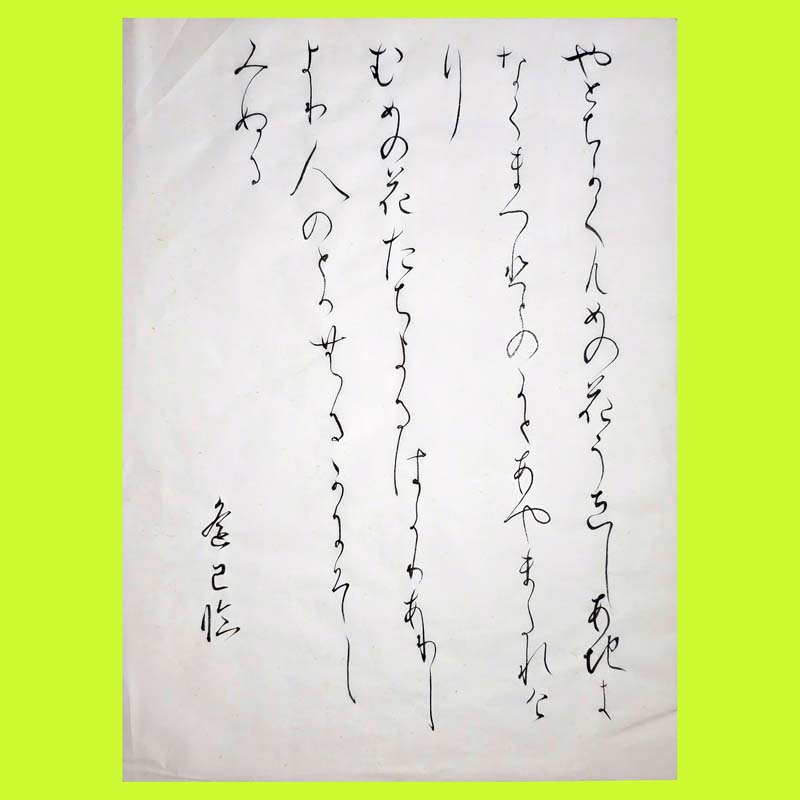 やとちかくむめの花うゑしあちき
なくまつひとのかとあやまたれけ
り
むめの花たちよるはかりありし
より人のとかむるかにそし
みぬる
臨